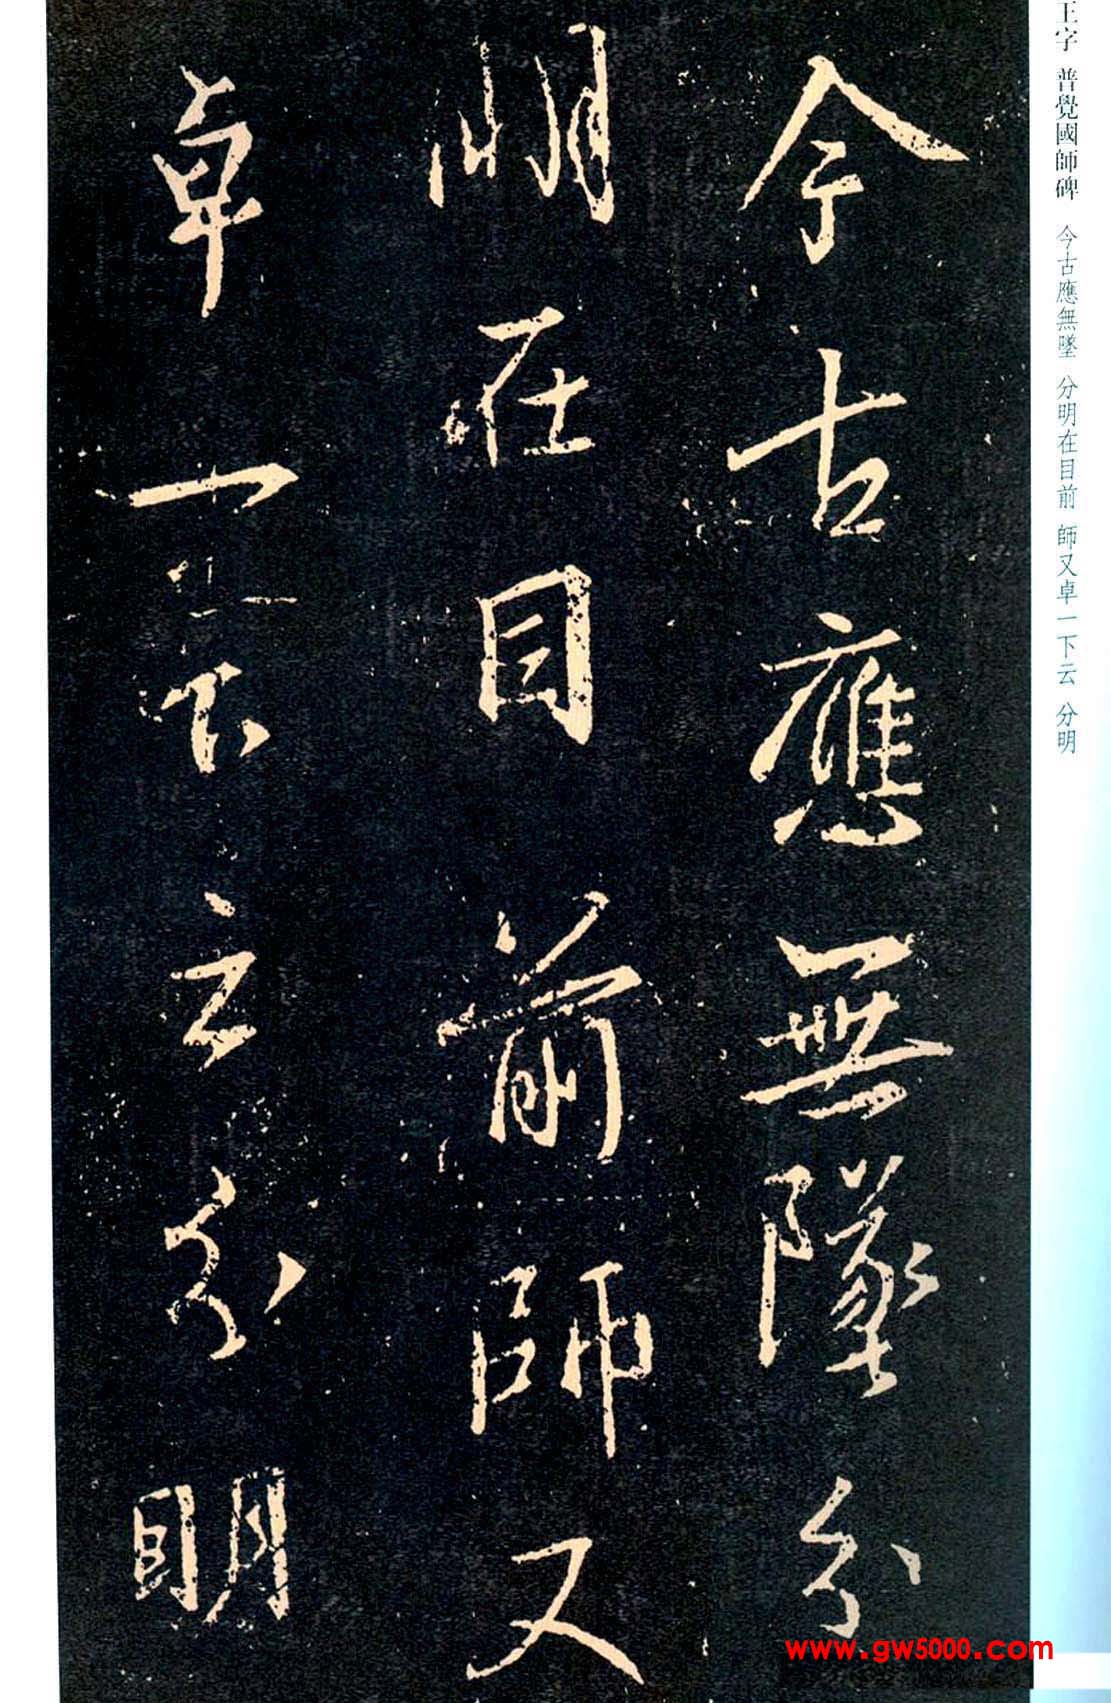 王字 普覺國師碑 今古應無墜 分明在目前 師又卓一下云 分明
今古應無墜分
明在目前師又
卓一下云分明
www.gw5000.com